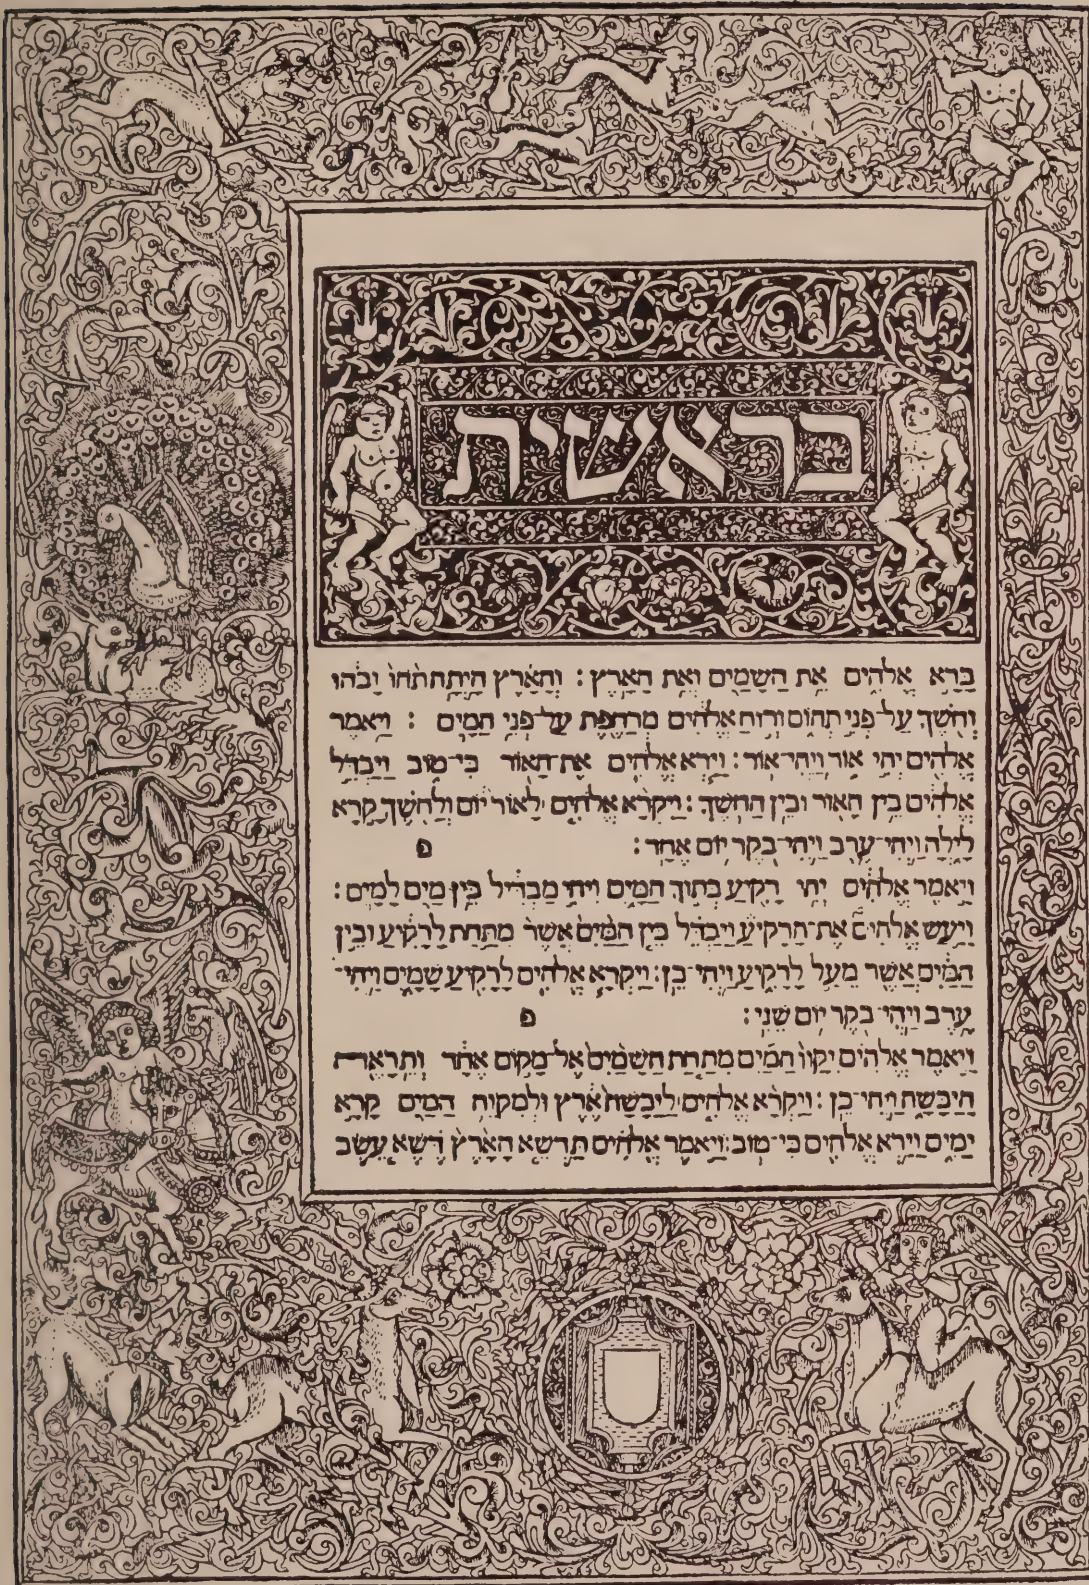 בראשית
בָּרָא אֱלֹהִים אֵת הַשָּׁמַיִם וְאֵת הָאָרֶץ : וְהָאָרֶץ הָיְתָה תֹהוּ וָבֹהוּ
וְחֹשֶׁךְ עַל־פְּנֵי תְהוֹם וְרוּחַ אֱלֹהִים מְרַחֶפֶת עַל־פְּנֵי הַמָּיִם : וַיֹּאמֶר
אֱלֹהִים יְהִי אוֹר וַיְהִי־אוֹר : וַיַּרְא אֱלֹהִים אֶת־הָאוֹר כִּי־טוֹב וַיַּבְדֵּל
אֱלֹהִים בֵּין הָאוֹר וּבֵין הַחֹשֶׁךְ : וַיִּקְרָא אֱלֹהִים לָאוֹר יוֹם וְלַחֹשֶׁךְ קָרָא
לָיְלָה וַיְהִי־עֶרֶב וַיְהִי־בֹקֶר יוֹם אֶחָד : פ
וַיֹּאמֶר אֱלֹהִים יְהִי רָקִיעַ בְּתוֹךְ הַמָּיִם וִיהִי מַבְדִּיל בֵּין מַיִם לָמָיִם :
וַיַּעַשׂ אֱלֹהִים אֶת־הָרָקִיעַ וַיַּבְדֵּל בֵּין הַמַּיִם אֲשֶׁר מִתַּחַת לָרָקִיעַ וּבֵין
הַמַּיִם אֲשֶׁר מֵעַל לָרָקִיעַ וַיְהִי־כֵן : וַיִּקְרָא אֱלֹהִים לָרָקִיעַ שָׁמָיִם וַיְהִי־
עֶרֶב וַיְהִי־בֹקֶר יוֹם שֵׁנִי : פ
וַיֹּאמֶר אֱלֹהִים יִקָּווּ הַמַּיִם מִתַּחַת הַשָּׁמַיִם אֶל־מָקוֹם אֶחָד וְתֵרָאֶה
הַיַּבָּשָׁה וַיְהִי־כֵן : וַיִּקְרָא אֱלֹהִים לַיַּבָּשָׁה אֶרֶץ וּלְמִקְוֵה הַמַּיִם קָרָא
יַמִּים וַיַּרְא אֱלֹהִים כִּי־טוֹב : וַיֹּאמֶר אֱלֹהִים תַּדְשֵׁא הָאָרֶץ דֶּשֶׁא עֵשֶׂב